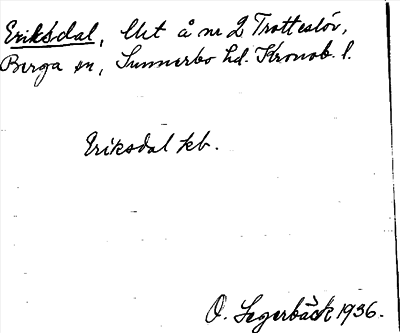 Eriksdal, lht å nr 2 Trotteslöv,
Berga sn, Sunnerbo hd. Kronob. l.
Eriksdal kb.
O. Segerbäck 1936.